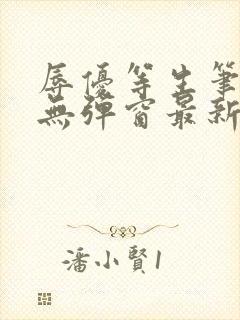 辱優等生筆
無彈窗最新
潘小賢1